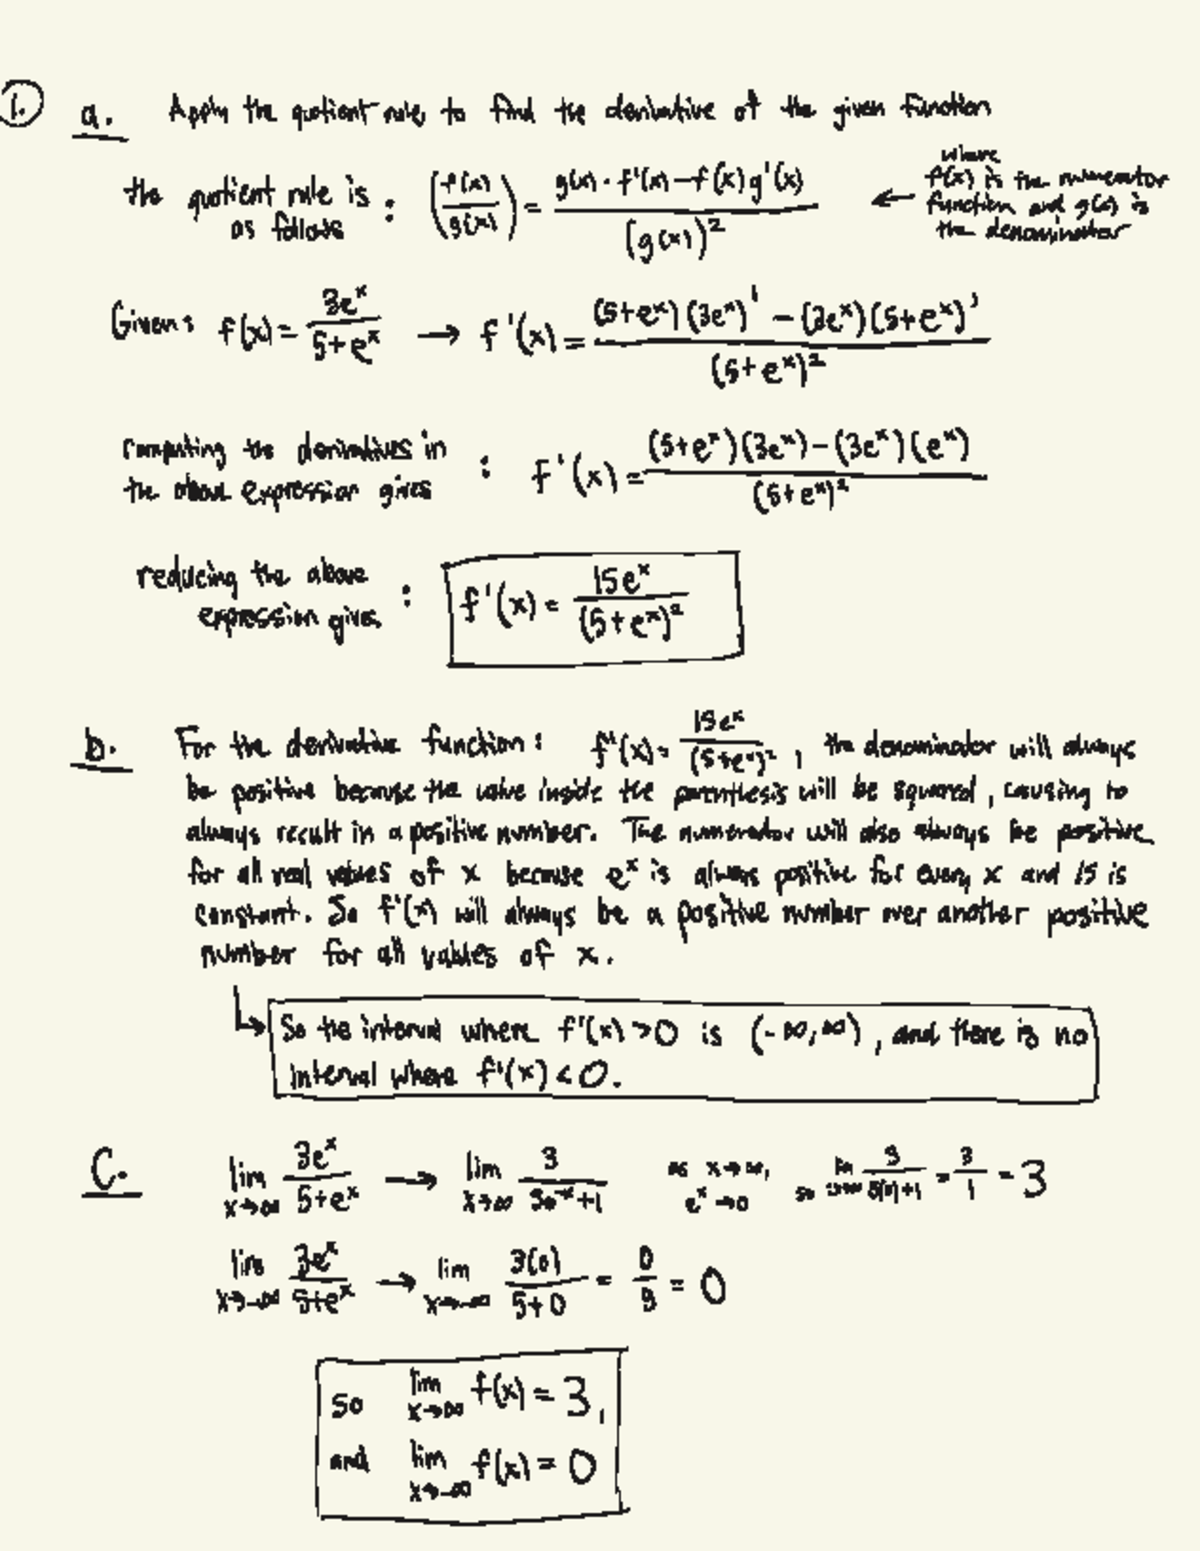 1. a. Apply the quotient rule, to find the derivative of the given function
the quotient rule is as follows : (f(x)/g(x)) = g(x) · f'(x) – f(x) g'(x) / (g(x))² ← where f(x) is the numerator function and g(x) is the denominator
Given: f(x) = 3eˣ / 5+eˣ → f'(x) = (5+eˣ)(3eˣ)' – (3eˣ)(5+eˣ)' / (5+eˣ)²
computing the derivatives in
the above expression gives : f'(x) = (5+eˣ)(3eˣ) – (3eˣ)(eˣ) / (5+eˣ)²
reducing the above
expression gives : f'(x) = 15eˣ / (5+eˣ)²
b. For the derivative function: f'(x) = 15eˣ / (5+eˣ)², the denominator will always
be positive because the value inside the parenthesis will be squared, causing to
always result in a positive number. The numerator will also always be positive
for all real values of x because eˣ is always positive for every x and 15 is
constant. So f'(x) will always be a positive number over another positive
number for all values of x.
↳ So the interval where f'(x) > 0 is (-∞, ∞), and there is no
interval where f'(x) < 0.
C. lim x→∞ 3eˣ / 5+eˣ → lim x→∞ 3 / 5e⁻ˣ+1 as x→∞, eˣ→0 so lim x→∞ 3 / 5(0)+1 = 3/1 = 3
lim x→-∞ 3eˣ / 5+eˣ → lim x→-∞ 3(0) / 5+0 = 0/5 = 0
so lim x→∞ f(x) = 3,
and lim x→-∞ f(x) = 0